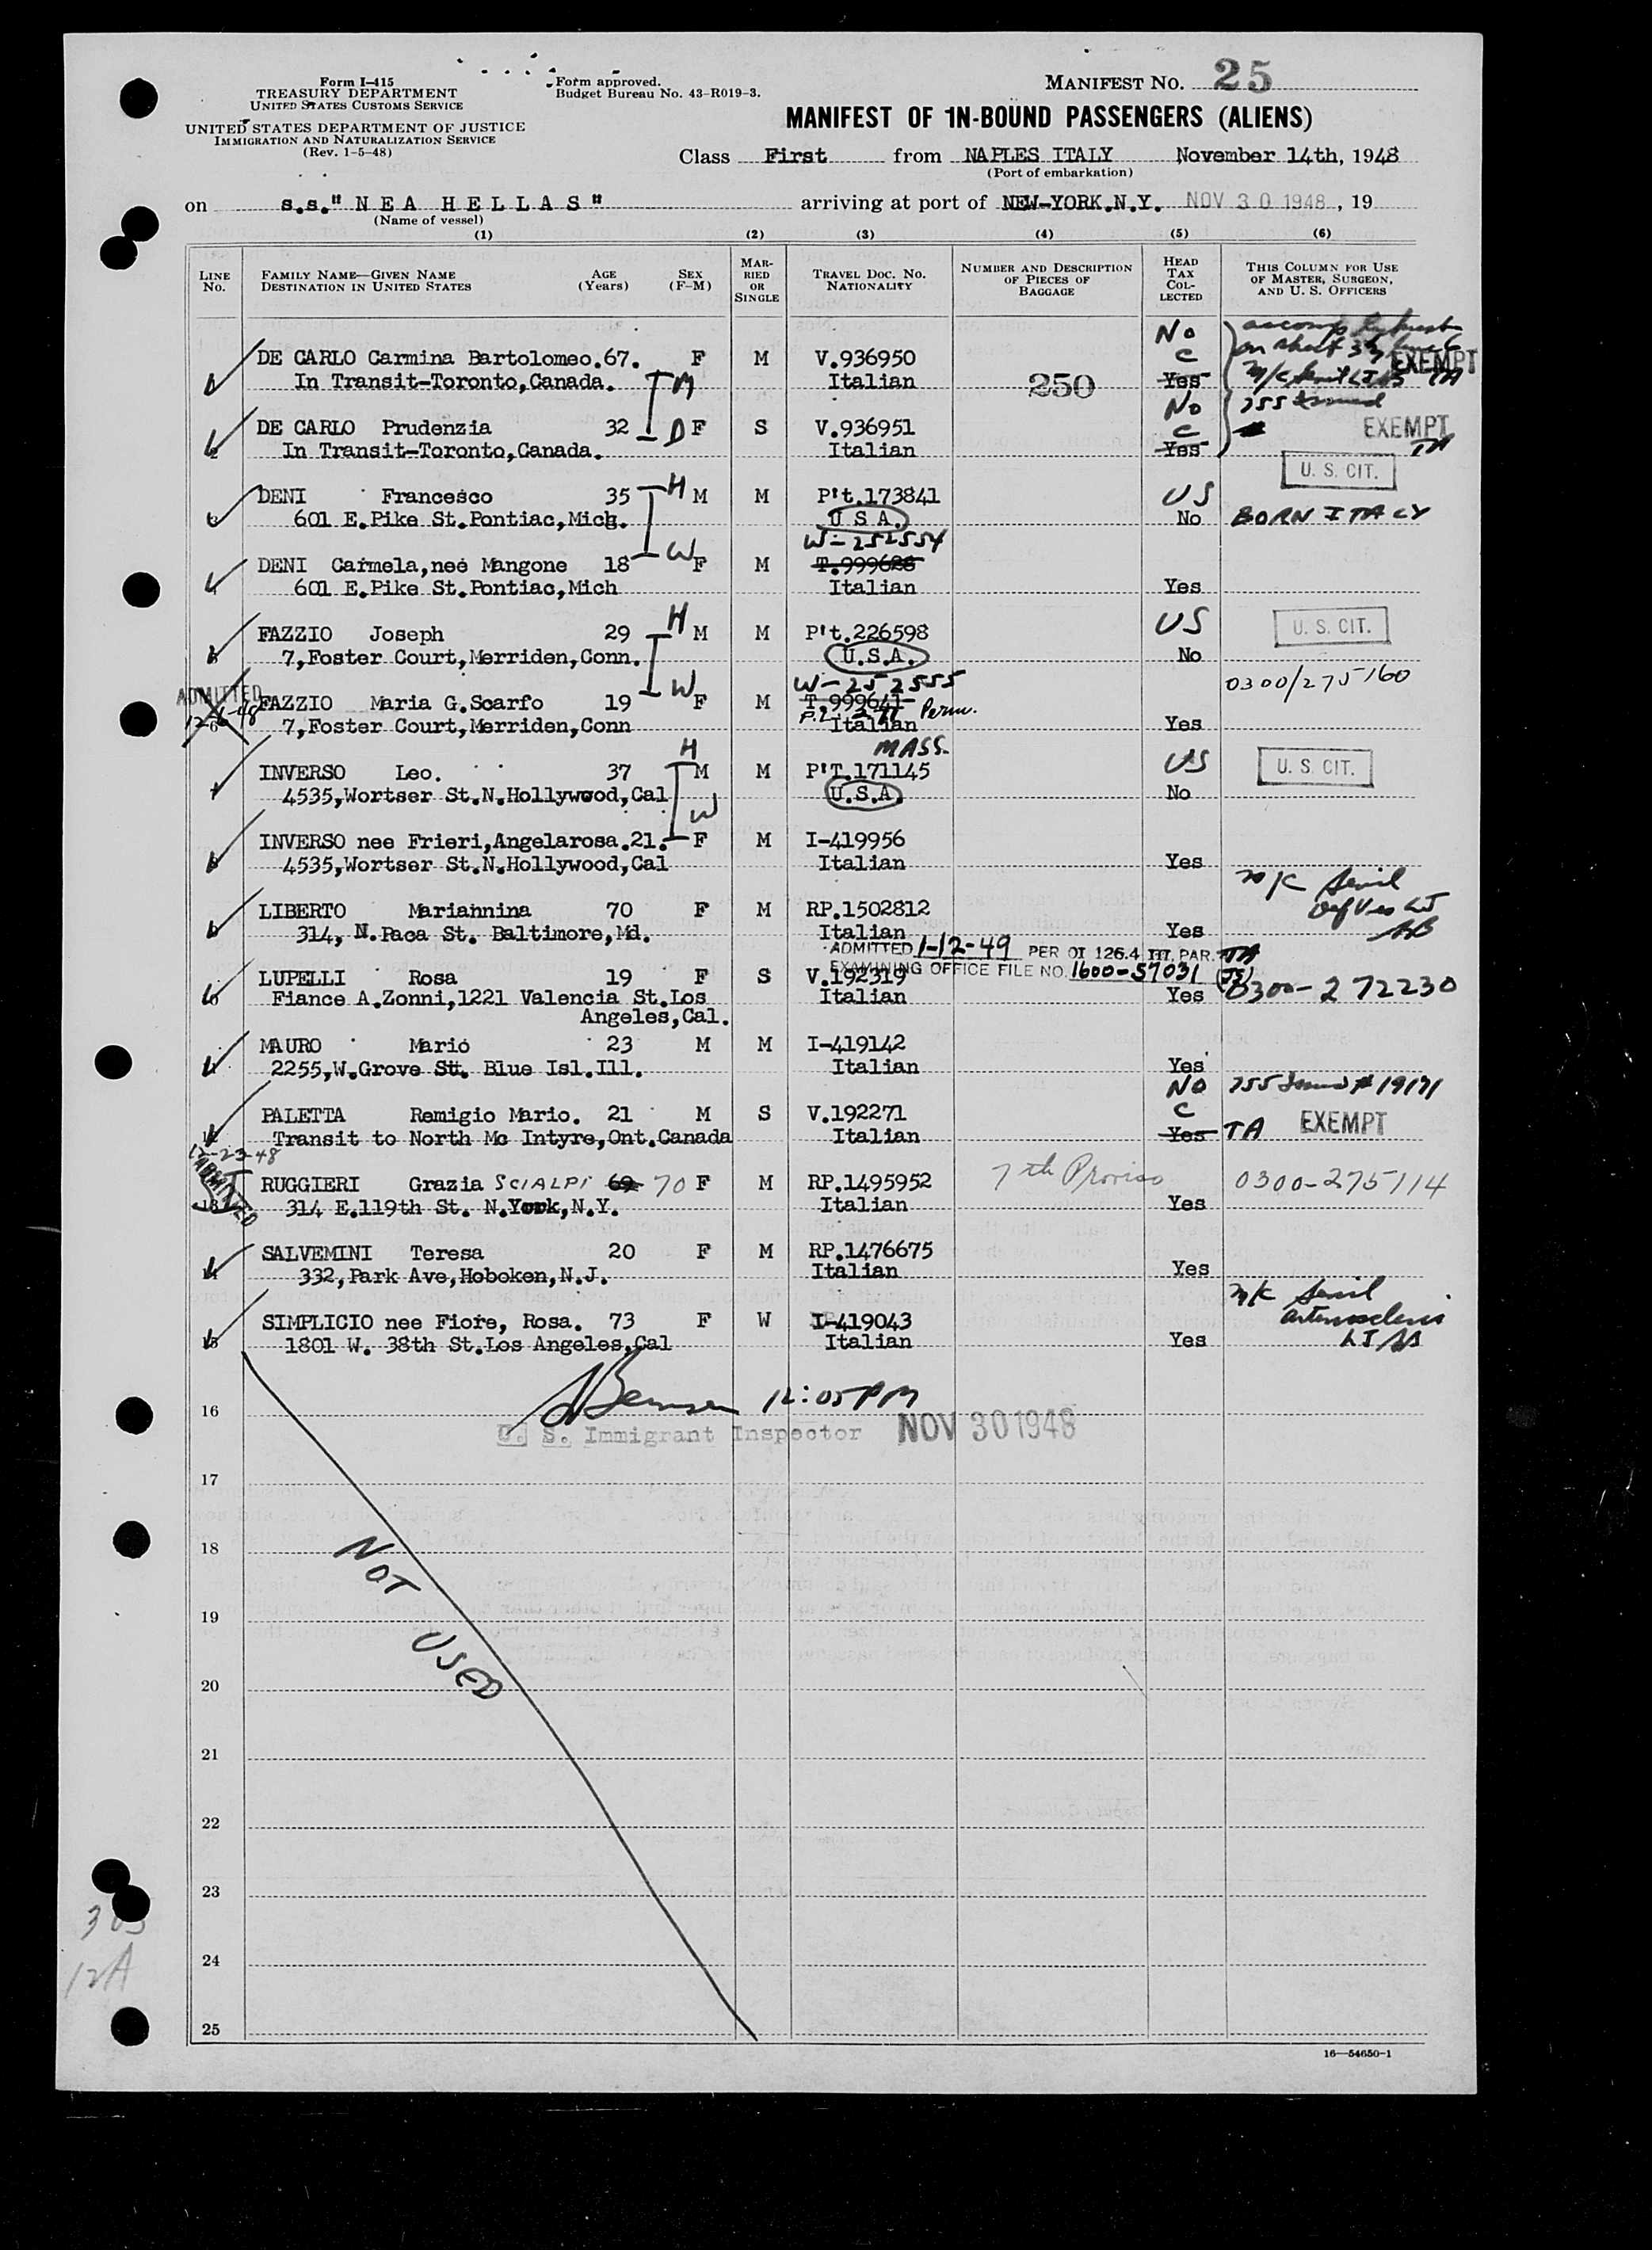 Form I-415
TREASURY DEPARTMENT
UNITED STATES CUSTOMS SERVICE
UNITED STATES DEPARTMENT OF JUSTICE
IMMIGRATION AND NATURALIZATION SERVICE
(Rev. 1-5-48)
Form approved.
Budget Bureau No. 43-R019-3.
MANIFEST NO. 25
MANIFEST OF IN-BOUND PASSENGERS (ALIENS)
Class First from NAPLES ITALY November 14th, 1948
(Port of embarkation)
on s.s." N E A H E L L A S " arriving at port of NEW-YORK.N.Y. NOV 30 1948, 19
(Name of vessel)
(1) (2) (3) (4) (5) (6)
LINE No. FAMILY NAME—GIVEN NAME DESTINATION IN UNITED STATES AGE (Years) SEX (F-M) MARRIED OR SINGLE TRAVEL DOC. NO. NATIONALITY NUMBER AND DESCRIPTION OF PIECES OF BAGGAGE HEAD TAX COLLECTED THIS COLUMN FOR USE OF MASTER, SURGEON, AND U. S. OFFICERS
No
DE CARLO Carmina Bartolomeo.67. F M V.936950 C EXEMPT
In Transit-Toronto,Canada. M Italian 250 Yes TA
No 255
DE CARLO Prudenzia 32 D F S V.936951 C EXEMPT
In Transit-Toronto,Canada. Italian Yes TA
U. S. CIT.
DENI Francesco 35 H M M P't.173841 US
601 E.Pike St.Pontiac,Mich. U S A. No BORN ITALY
W-252554
DENI Carmela,neé Mangone 18 W F M T.999628
601 E.Pike St.Pontiac,Mich Italian Yes
FAZZIO Joseph 29 H M M P't.226598 US U. S. CIT.
7,Foster Court,Merriden,Conn. U.S.A. No
W-252555 0300/275160
ADMITTED FAZZIO Maria G.Scarfo 19 W F M T.999641
12-6-48 6 7,Foster Court,Merriden,Conn Italian Perm. Yes
MASS.
INVERSO Leo. 37 H M M P'T.171145 US U. S. CIT.
4535,Wortser St.N.Hollywood,Cal U.S.A. No
W
INVERSO nee Frieri,Angelarosa.21. F M I-419956
4535,Wortser St.N.Hollywood,Cal Italian Yes
M/C Senil
LIBERTO Mariannina 70 F M RP.1502812
314, N.Paca St. Baltimore,Md. Italian Yes
ADMITTED 1-12-49 PER OI 126.4 III, PAR. TA
EXAMINING OFFICE FILE NO. 1600-57031 (JS)
LUPELLI Rosa 19 F S V.192319
Fiance A.Zonni,1221 Valencia St.Los Italian Yes 0300-272230
Angeles,Cal.
MAURO Mario 23 M M I-419142
2255,W.Grove St. Blue Isl.Ill. Italian Yes
NO 255 Issued # 19171
PALETTA Remigio Mario. 21 M S V.192271 C EXEMPT
Transit to North Mc Intyre,Ont.Canada Italian Yes TA
12-23-48
ADMITTED
RUGGIERI Grazia SCIALPI 69 70 F M RP.1495952 7th Proviso 0300-275114
314 E.119th St. N.York,N.Y. Italian Yes
SALVEMINI Teresa 20 F M RP.1476675
332,Park Ave,Hoboken,N.J. Italian Yes
M/C Senil
SIMPLICIO nee Fiore, Rosa. 73 F W I-419043
1801 W. 38th St.Los Angeles,Cal Italian Yes
12:05 PM
16
U. S. Immigrant Inspector NOV 30 1948
17
18
NOT
19
USED
20
21
22
23
24
12A
25
16—54650-1